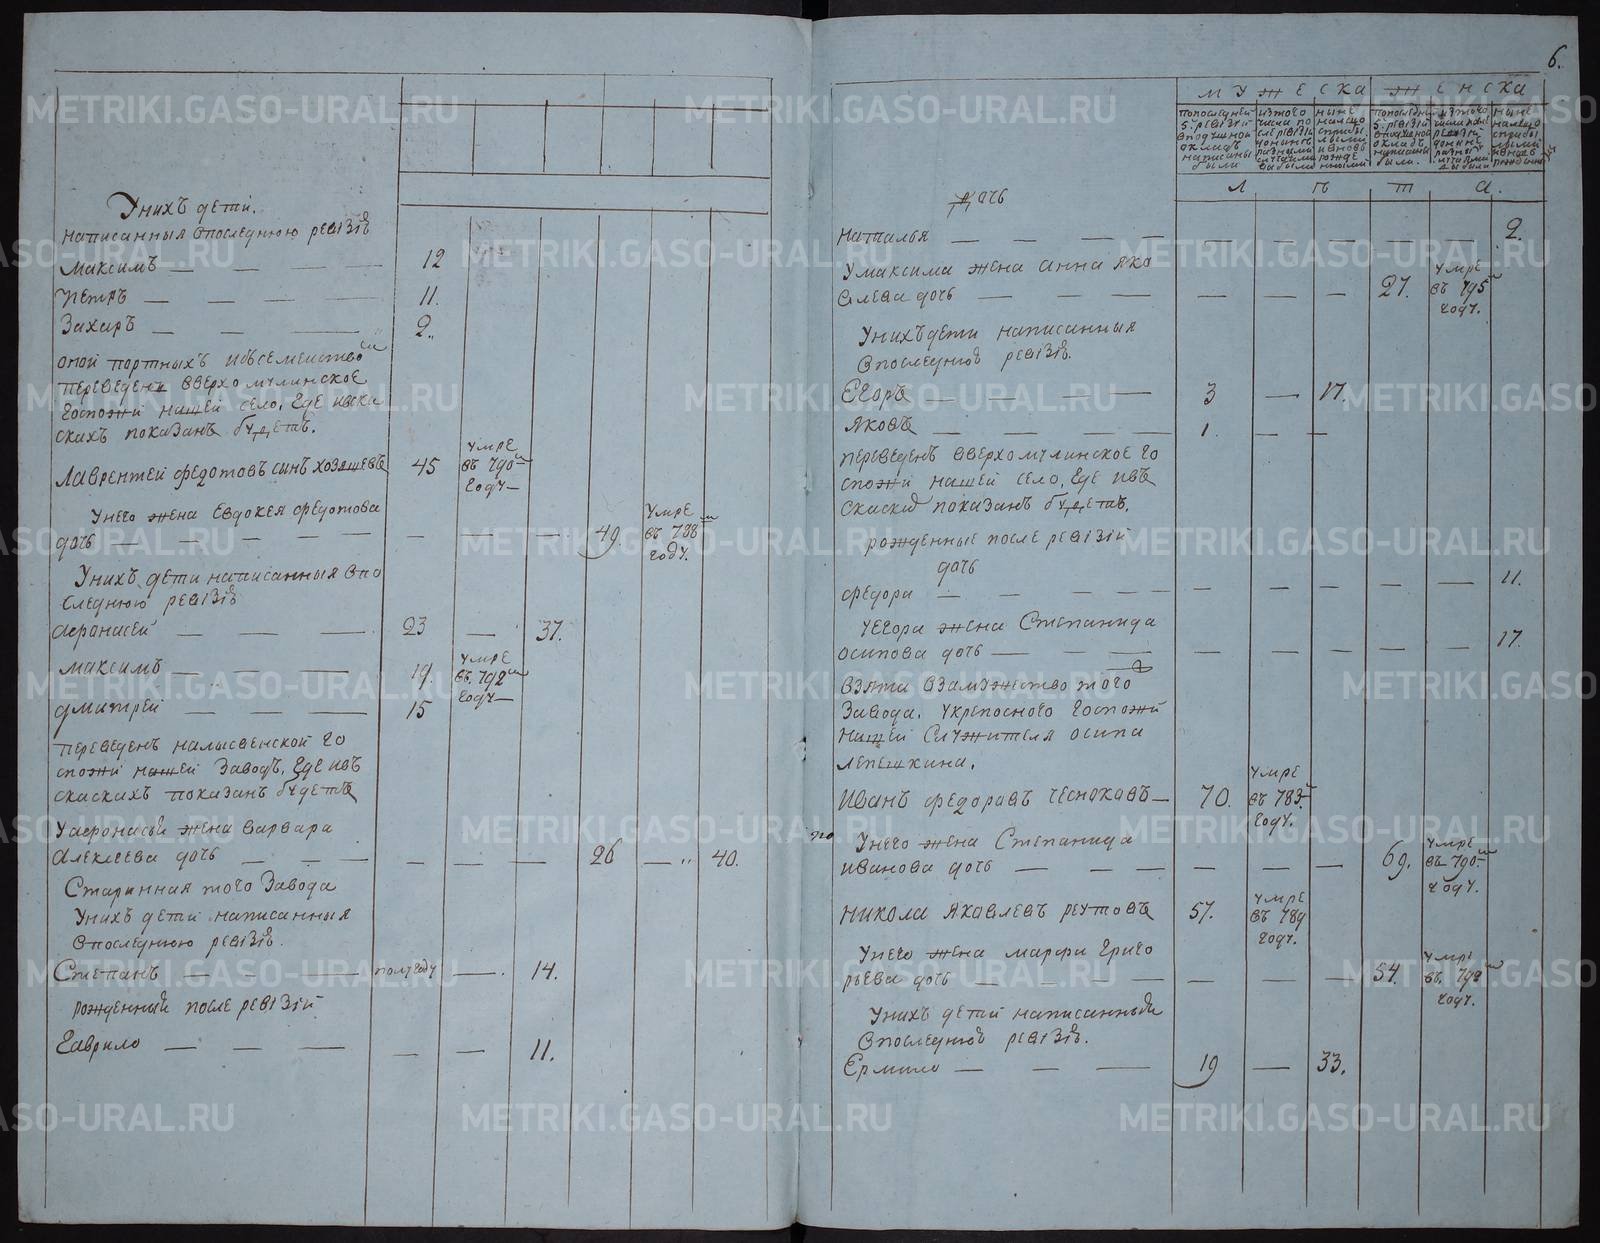 Унихъ дети.
написанныя впоследнюю ревiзiю
Максимъ — — — 12
Петръ — — — — 11.
Захаръ — — — 2..
оной портныхъ исъсемействомъ
переведенъ вверхомулинское
Госпожи нашей село, где ивска
скахъ показанъ будетъ.
Лаврентей федотовъ сынъ хозяшевъ 45 умре въ 790м году —
Унего жена Евдокея федотова
дочь — — — — — — — 49. умре въ 788м году.
Унихъ дети написанныя впо
следнюю ревiзiю
Афонасей — — — 23 — 37.
Максимъ — — — 19. умре въ 792м году —
Дмитрей — — — 15
переведенъ налысвенской го
спожи нашей заводъ, где ивъ
скаскахъ показанъ будетъ
Уафонасьи жена варвара
Алексеева дочь — — — — — — 26 — „ 40.
Старинная того завода
Унихъ дети написанныя
впоследнюю ревiзiю.
Степанъ — — — полугоду — 14.
рожденный после ревiзiи
Гаврило — — — — — 11.
6.
МУЖЕСКА ЖЕНСКА
попоследней 5. ревiзiи вподушной окладъ написаны были
изтого числа после ревiзiи донынѣ разными случаями выбыло
ныне налицо сприбылыми ивновь рожденными
Л ѣ т а.
дочь
Наталья — — — — — — — — 9.
Умаксима жена анна яко
влева дочь — — — — — — — 27. умре въ 795м году.
Унихъ дети написанныя
впоследнюю ревiзiю.
Егоръ — — — — 3 — 17.
Яковъ — — — — 1. — —
переведенъ вверхомулинское го
спожи нашей село, где ивъ
скаски показанъ будетъ.
рожденные после ревiзiи
дочь
федора — — — — — — — — — 11.
Уегора жена Степанида
осипова дочь — — — — — — — — 17.
взята взамужество того
завода. укрепосного госпожи
нашей служителя осипа
лепешкина.
Иванъ федоровъ чесноковъ — 70. умре въ 783м году.
Унего жена Степанида
иванова дочь — — — — — — 69. умре въ 790м году.
Никола яковлевъ реутовъ 57. умре въ 789 году.
Унего жена марфа григо
рьева дочь — — — — — — 54. умре въ 792м году.
Унихъ детей написанный
впоследнюю ревiзiю.
Ермило — — — 19 — 33.
METRIKI.GASO-URAL.RU